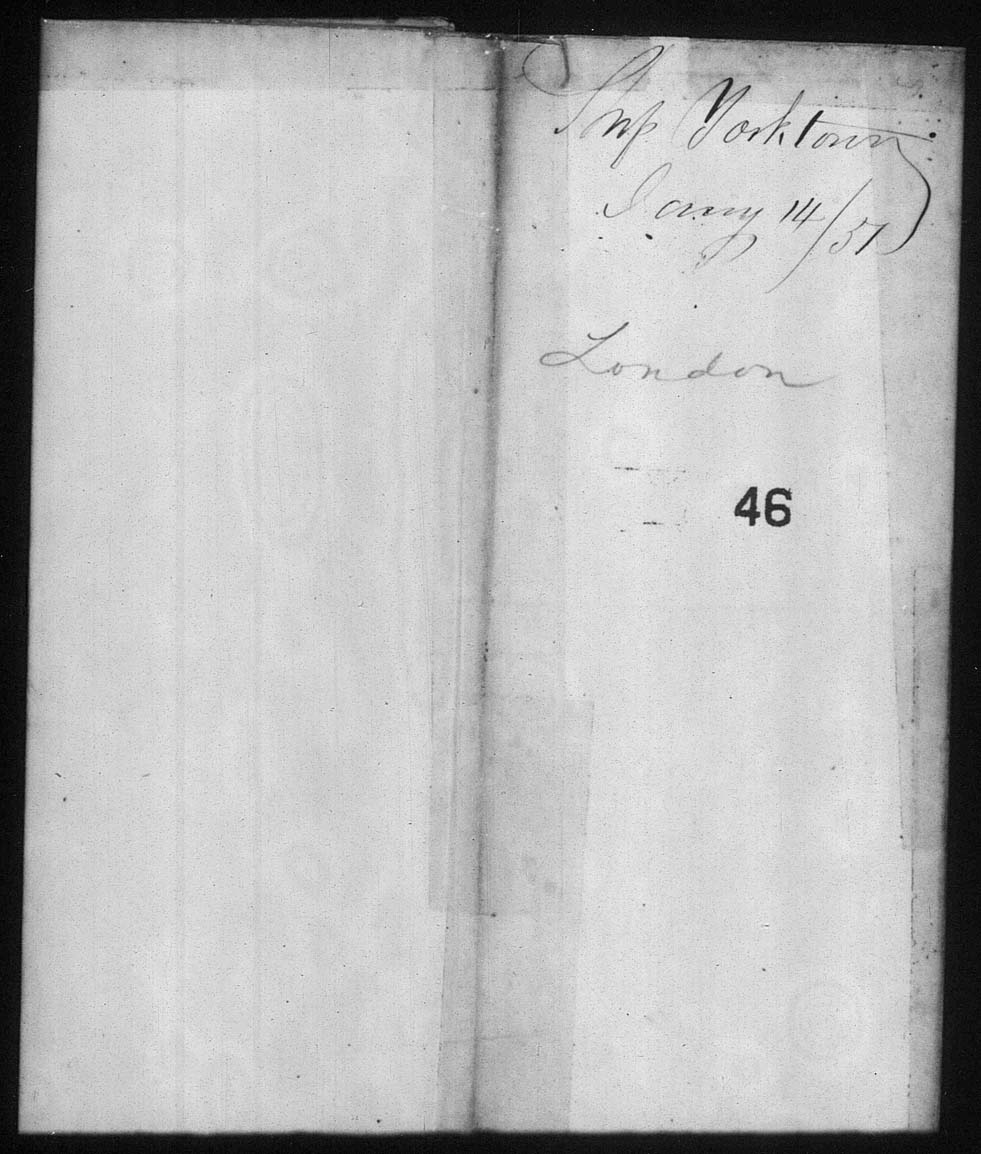 Ship Yorktown
Jany 14/51
London
46